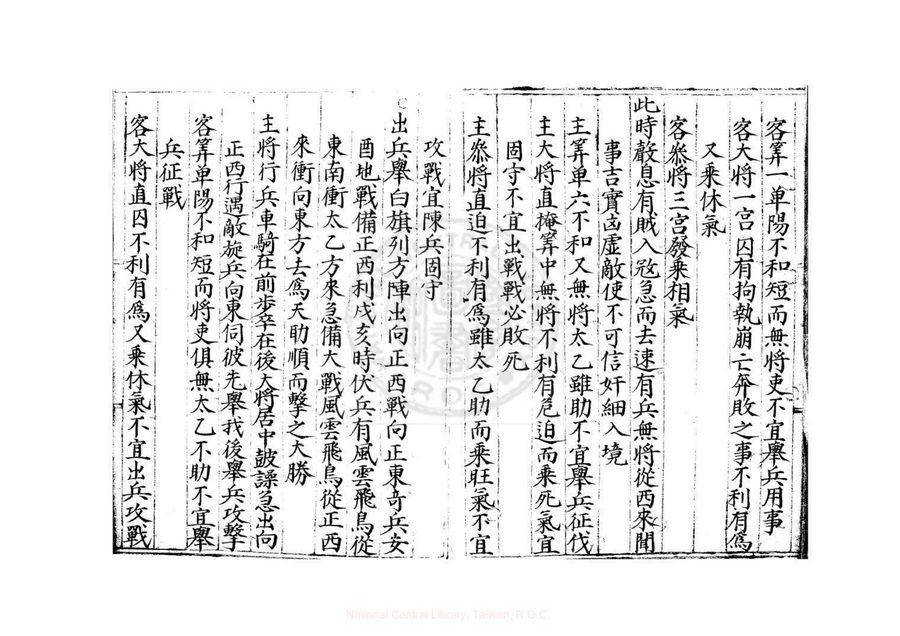 客筭一单陽不和短而無將吏不宜舉兵用事
客大將一宫囚有拘執崩亡奔敗之事不利有為
又乘休氣
客叅將三宫發乘相氣
此時聲息有賊入宼急而去速有兵無將從西來聞
事吉實凶虚敵使不可信奸細入境
主筭单六不和又無將太乙雖助不宜舉兵征伐
主大將直掩筭中無將不利有危迫而乘死氣宜
固守不宜出戰戰必敗死
主叅將直迫不利有為雖太乙助而乘旺氣不宜
攻戰宜陳兵固守
出兵舉白旗列方陣出向正西戰向正東竒兵安
酉地戰備正西利戌亥時伏兵有風雲飛鳥從
東南衝太乙方來急備大戰風雲飛鳥從正西
來衝向東方去為天助順而擊之大勝
主將行兵車騎在前歩卒在後大將居中鼓譟急出向
正西行遇敵旋兵向東伺彼先舉我後舉兵攻擊
客筭单陽不和短而將吏俱無太乙不助不宜舉
兵征戰
客大將直囚不利有為又乘休氣不宜出兵攻戰
National Central Library, Taiwan, R.O.C.